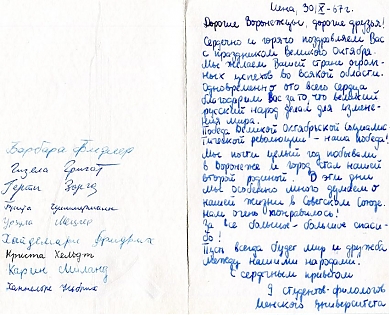 Барбара Фледлер
Гизела Григот
Герти Зорге
Гунда Циммерманн
Урзула Мецнер
Хайдемари Фридрих
Криста Хельдт
Карин Миланд
Ханнелоре
Иена, 30/X-67г.
Дорогие Воронежцы, дорогие друзья!
Сердечно и горячо поздравляем Вас
с праздником Великого Октября.
Мы желаем Вашей стране огром-
ных успехов во всякой области.
Одновременно ото всего сердца
благодарим Вас за то, что великий
русский народ делал для измене-
ния мира.
Победа Великой Октябрьской социалис-
тической революции - наша победа!
Мы почти целый год побывали
в Воронеже и город стал нашей
второй родиной. В эти дни
мы особенно много думаем о
нашей жизни в Советском Союзе.
Нам очень понравилось!
За все больше - большое спаси-
бо!
Пусть всегда будет мир и дружба
между нашими народами.
С сердечным приветом
9 студентов-филологов
Иенского университета